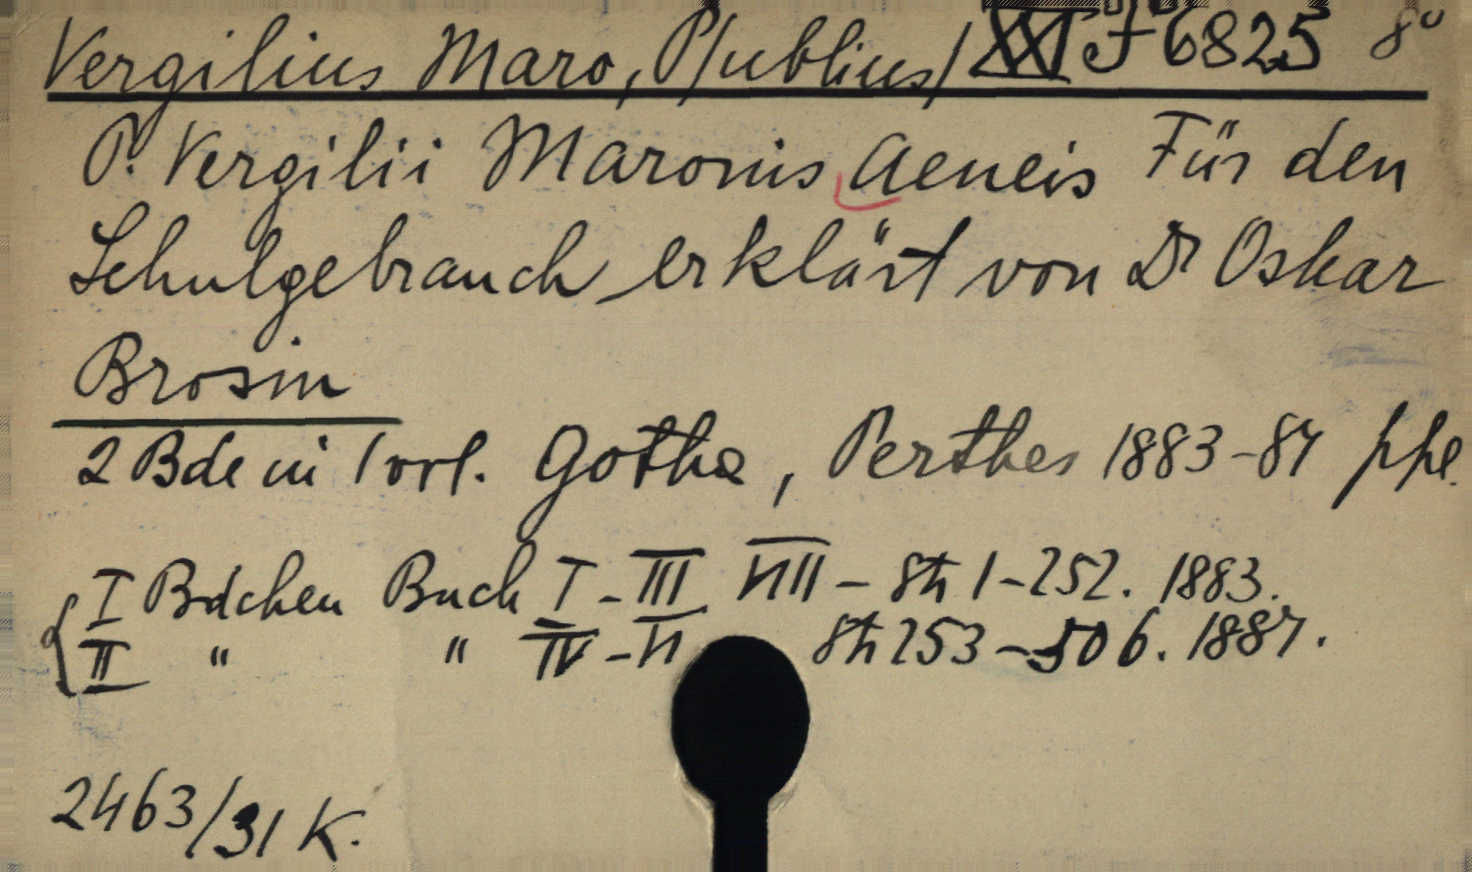 Vergilius Maro, P/ublius/ XXI J 6825 8°
P. Vergilii Maronis Aeneis Für den
Schulgebrauch erklärt von Dr Oskar
Brosin
2 Bde in 1 vol. Gotha, Perthes 1883-87 ppe.
I Bdchen Buch I-III VIII - S. 1-252. 1883.
II " " IV-VI S. 253-506. 1887.
2463/31 K.